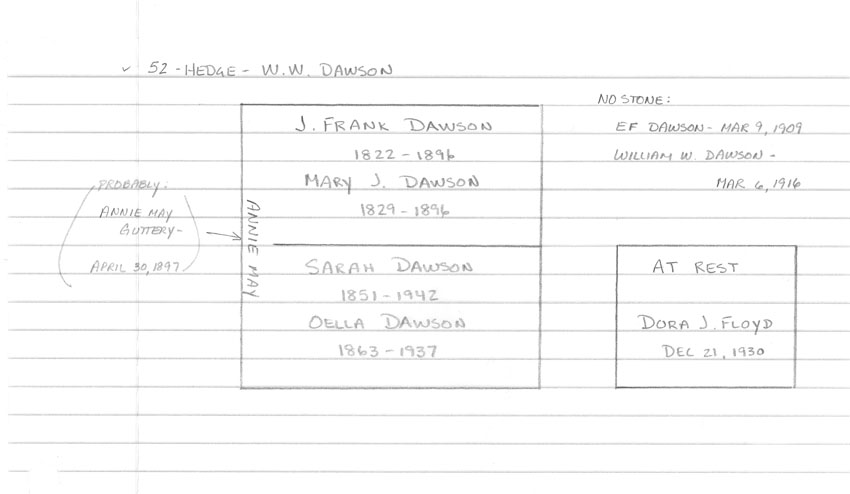 ✓ 52 - HEDGE - W.W. DAWSON
NO STONE:
EF DAWSON - MAR 9, 1909
WILLIAM W. DAWSON -
MAR 6, 1916
J. FRANK DAWSON
1822 - 1896
MARY J. DAWSON
1829 - 1896
PROBABLY:
ANNIE MAY
GUTTERY -
APRIL 30, 1897
ANNIE MAY
SARAH DAWSON
1851 - 1942
OELLA DAWSON
1863 - 1937
AT REST
DORA J. FLOYD
DEC 21, 1930